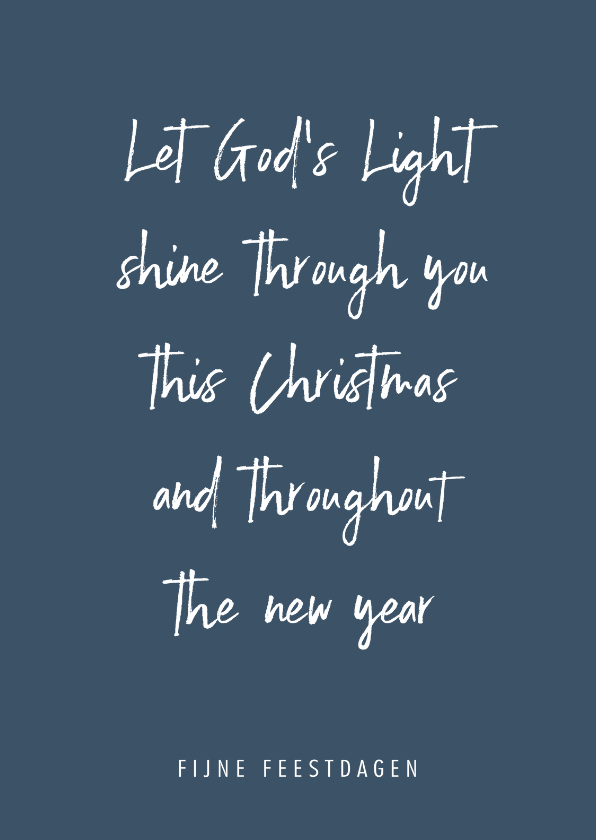 Let God's Light
shine through you
this Christmas
and throughout
the new year
FIJNE FEESTDAGEN